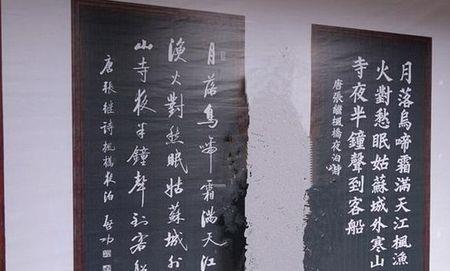 月落烏啼霜滿天江楓漁
火對愁眠姑蘇城外寒山
寺夜半鐘聲到客船
唐張繼楓橋夜泊詩
月落烏啼霜滿天江
漁火對愁眠姑蘇城外
山寺夜半鐘聲到客船
唐張继诗楓橋夜泊 啟功